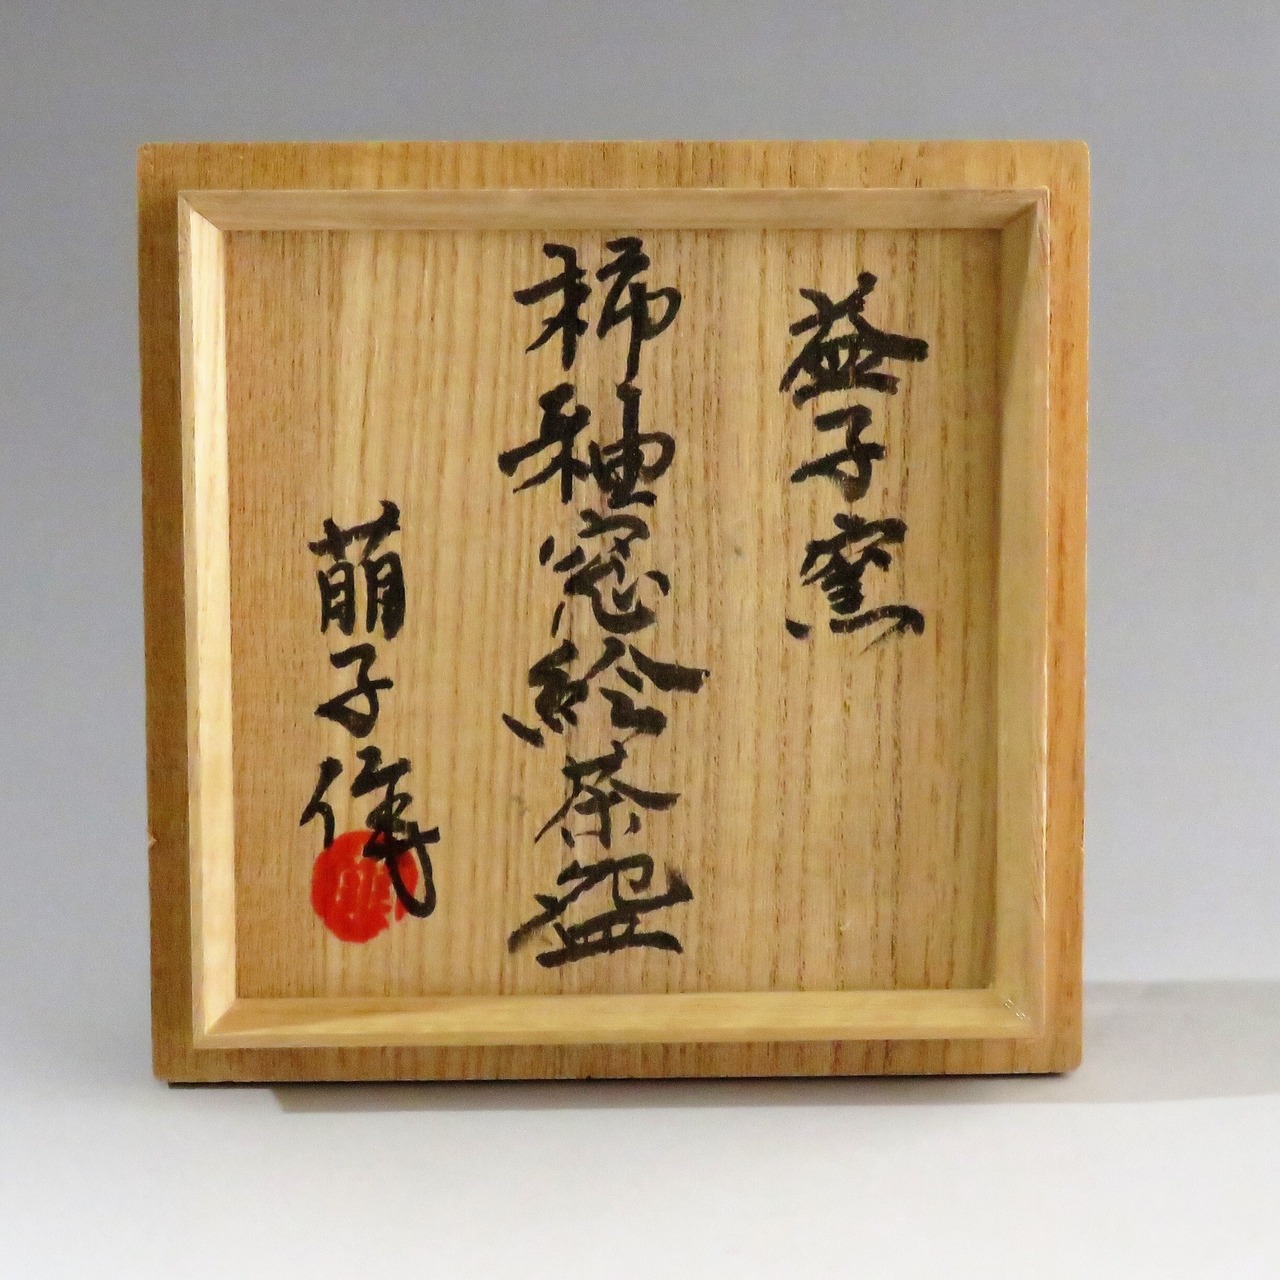 益子窯
柿釉窓絵茶盌
萠子作